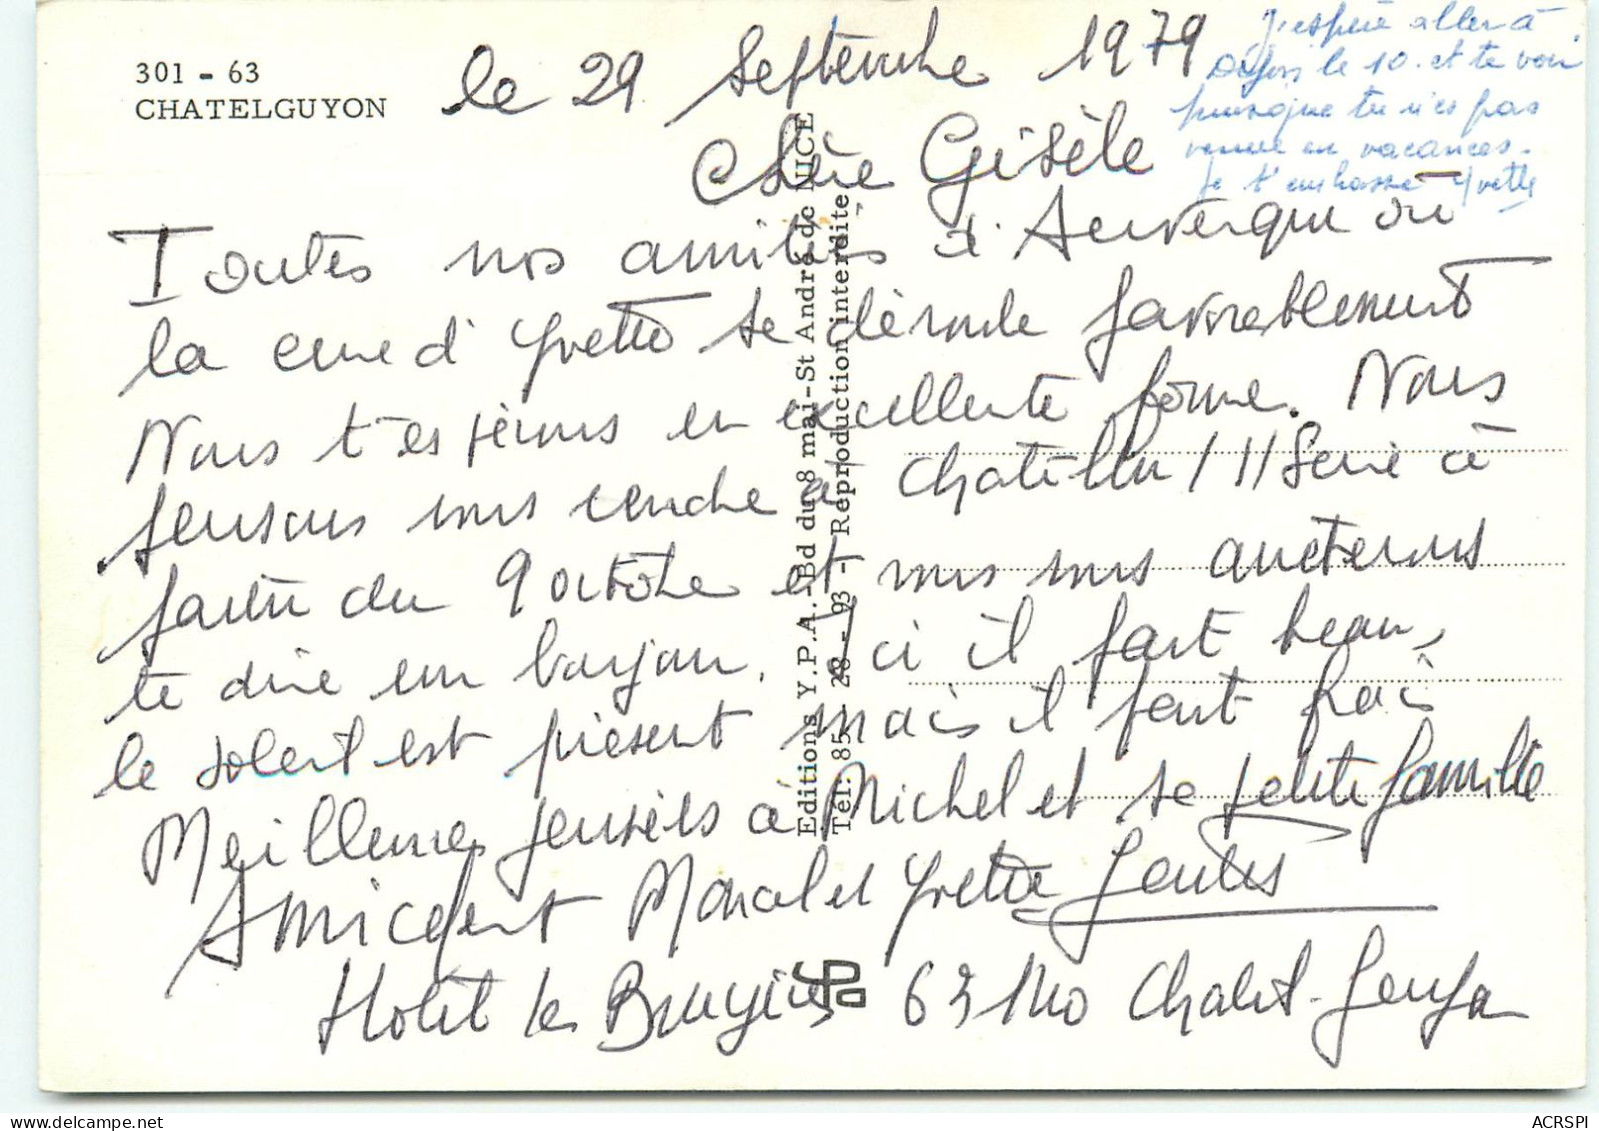 301 - 63
CHATELGUYON
le 29 Septembre 1979
Chère Gisèle
Toutes nos amitiés d'Auvergne où
la cure d'Yvette se déroule favorablement
Nous t'espérons en excellente forme. Nous
pensons nous rendre à Chatillon / Seine à
partir du 9 octobre et nous nous arrêterons
te dire un bonjour. Ici il fait beau,
le soleil est présent mais il fait frais
Meilleures pensées à Michel et sa petite famille
Amicalement Marcel et Yvette
Hotel les Bruyères 63140 Chatel-Guyon
J'espère aller à
le 10. et te voir
puisque tu n'es pas
venue en vacances.
Je t'embrasse Yvette
Editions Y.P.A. Bd du 8 mai-St André de NICE
Tél: 85 - 28 - 93 - Reproduction interdite
YPa
ACRSPI